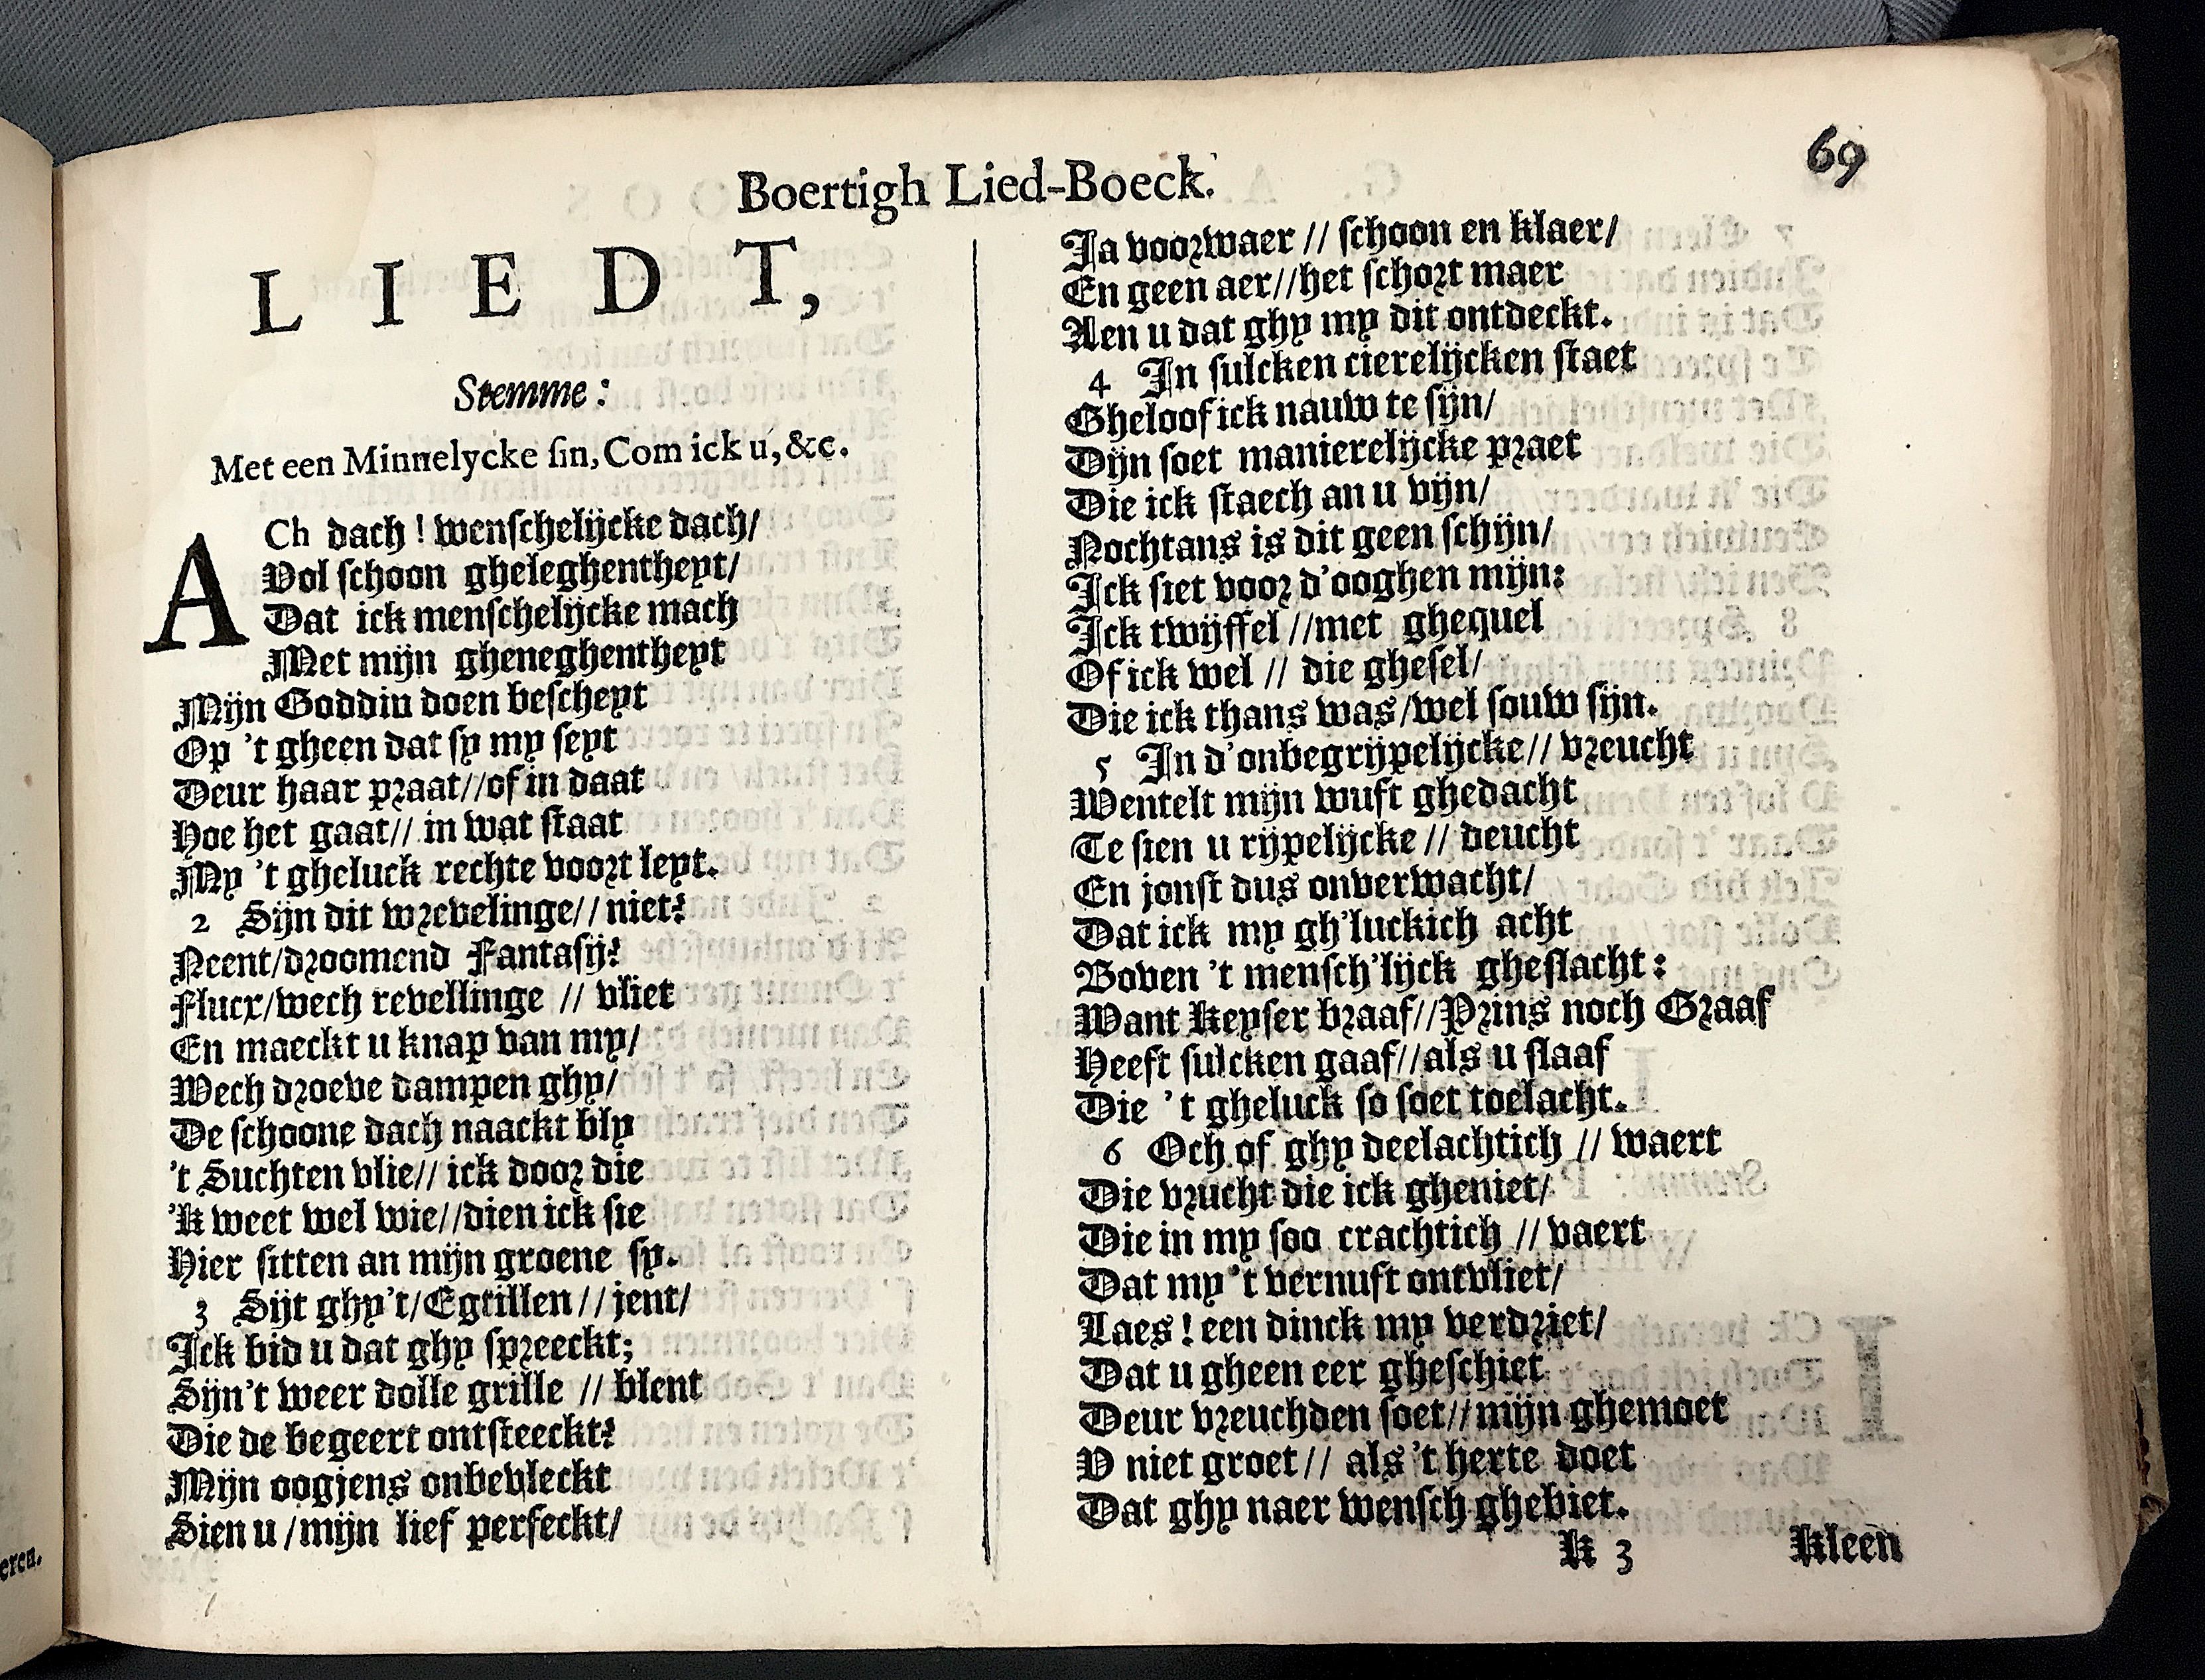 Boertigh Lied-Boeck.
69
LIEDT,
Stemme:
Met een Minnelycke sin, Com ick u, &c.
ACh dach! wenschelijcke dach/
Vol schoon gheleghentheyt/
Dat ick menschelijcke mach
Met mijn gheneghentheyt
Mijn Goddin doen bescheyt
Op 't gheen dat sy my seyt
Deur haar praat//of in daat
Hoe het gaat// in wat staat
My 't gheluck rechte voort leyt.
2 Sijn dit wrevelinge//niet?
Neent/droomend Fantasij?
Flucx/wech revellinge // vliet
En maeckt u knap van my/
Wech droeve dampen ghy/
De schoone dach naackt bly
't Suchten vlie// ick door die
'K weet wel wie//dien ick sie
Hier sitten an mijn groene sy.
3 Sijt ghy't/Egtillen//jent/
Ick bid u dat ghy spreeckt;
Sijn't weer dolle grille // blent
Die de begeert ontsteeckt?
Mijn oogjens onbevleckt
Sien u /mijn lief perfeckt/
Ja voorwaer // schoon en klaer/
En geen aer//het schort maer
Aen u dat ghy my dit ontdeckt.
4 In sulcken cierelijcken staet
Gheloof ick nauw te sijn/
Dijn soet manierelijcke praet
Die ick staech an u vijn/
Nochtans is dit geen schijn/
Ick siet voor d'ooghen mijn:
Ick twijffel //met ghequel
Of ick wel // die ghesel/
Die ick thans was/wel souw sijn.
5 In d'onbegrijpelijcke// vreucht
Wentelt mijn wuft ghedacht
Te sien u rijpelijcke // deucht
En jonst dus onverwacht/
Dat ick my gh'luckich acht
Boven 't mensch'lijck gheslacht:
Want Keyser braaf//Prins noch Graaf
Heeft sulcken gaaf//als u slaaf
Die 't gheluck so soet toelacht.
6 Och of ghy deelachtich // waert
Die vrucht die ick gheniet/
Die in my soo crachtich // vaert
Dat my 't vernuft ontvliet/
Laes! een dinck my verdriet/
Dat u gheen eer gheschiet
Deur vreuchden soet//mijn ghemoet
V niet groet// als 't herte doet
Dat ghy naer wensch ghebiet.
K 3
Kleen
eren.